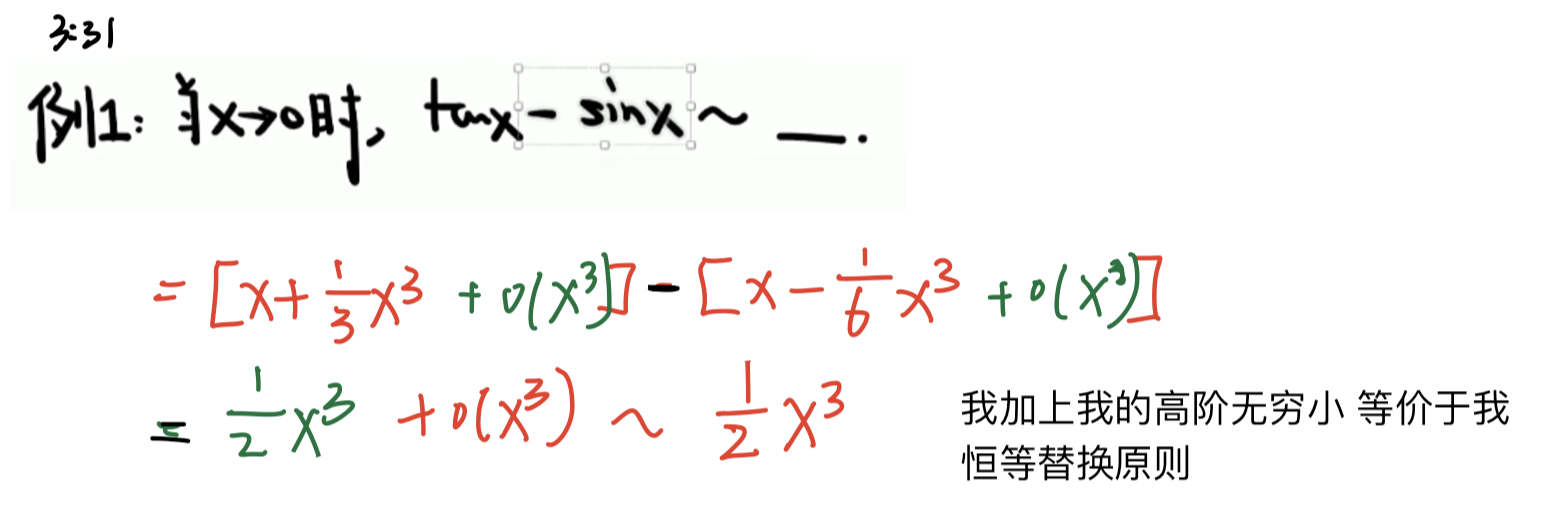 3:31
例1: 当x→0时, tanx - sinx ~ ___.
= [x + 1/3 x³ + o(x³)] - [x - 1/6 x³ + o(x³)]
= 1/2 x³ + o(x³) ~ 1/2 x³
我加上我的高阶无穷小 等价于我
恒等替换原则